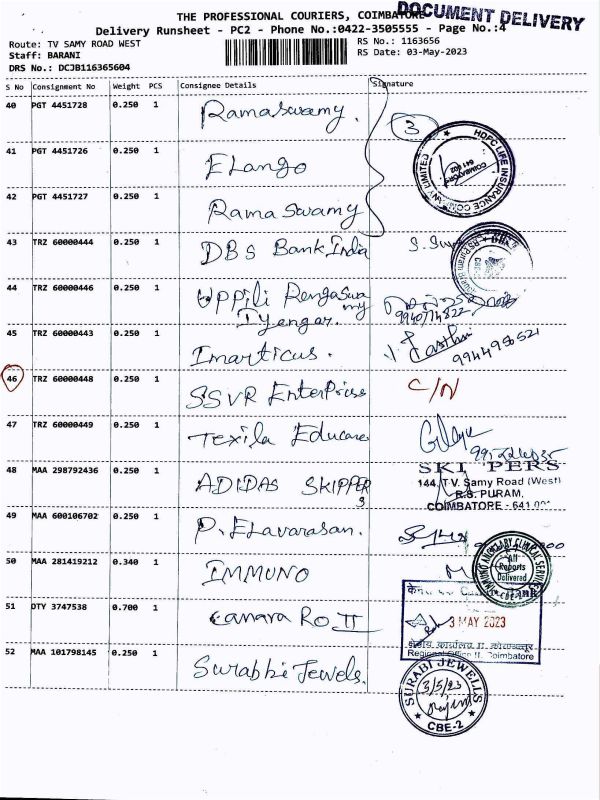 THE PROFESSIONAL COURIERS, COIMBATORE
DOCUMENT DELIVERY
Delivery Runsheet - PC2 - Phone No.:0422-3505555 - Page No.:4
Route: TV SAMY ROAD WEST
RS No.: 1163656
Staff: BARANI
RS Date: 03-May-2023
DRS No.: DCJB116365604
S No Consignment No Weight PCS Consignee Details Signature
40 PGT 4451728 0.250 1 Ramaswamy.
3
41 PGT 4451726 0.250 1 Elango
HDFC LIFE INSURANCE COMPANY LIMITED
COIMBATORE
641 002
42 PGT 4451727 0.250 1 Ramaswamy
43 TRZ 60000444 0.250 1 DBS Bank India
CBE
44 TRZ 60000446 0.250 1 Uppili Rengaswamy Iyengar.
9940774822
45 TRZ 60000443 0.250 1 Imarticus.
46 TRZ 60000448 0.250 1 SSVR Enterprise C/N
47 TRZ 60000449 0.250 1 Texila Educare
48 MAA 298792436 0.250 1 ADIDAS SKIPPERS
SKIPPERS
144, T.V. Samy Road (West)
R.S. PURAM,
COIMBATORE - 641
49 MAA 600106702 0.250 1 P. Elavarasan.
50 MAA 281419212 0.340 1 IMMUNO
All
Reports
Delivered
51 DTY 3747538 0.700 1 Canara Ro. II
3 MAY 2023
क्षेत्रीय कार्यालय II, कोयम्बत्तूर
Regional Office II, Coimbatore
52 MAA 101798145 0.250 1 Surabhi Jewels.
SURABI JEWELLS
3/5/23
CBE-2